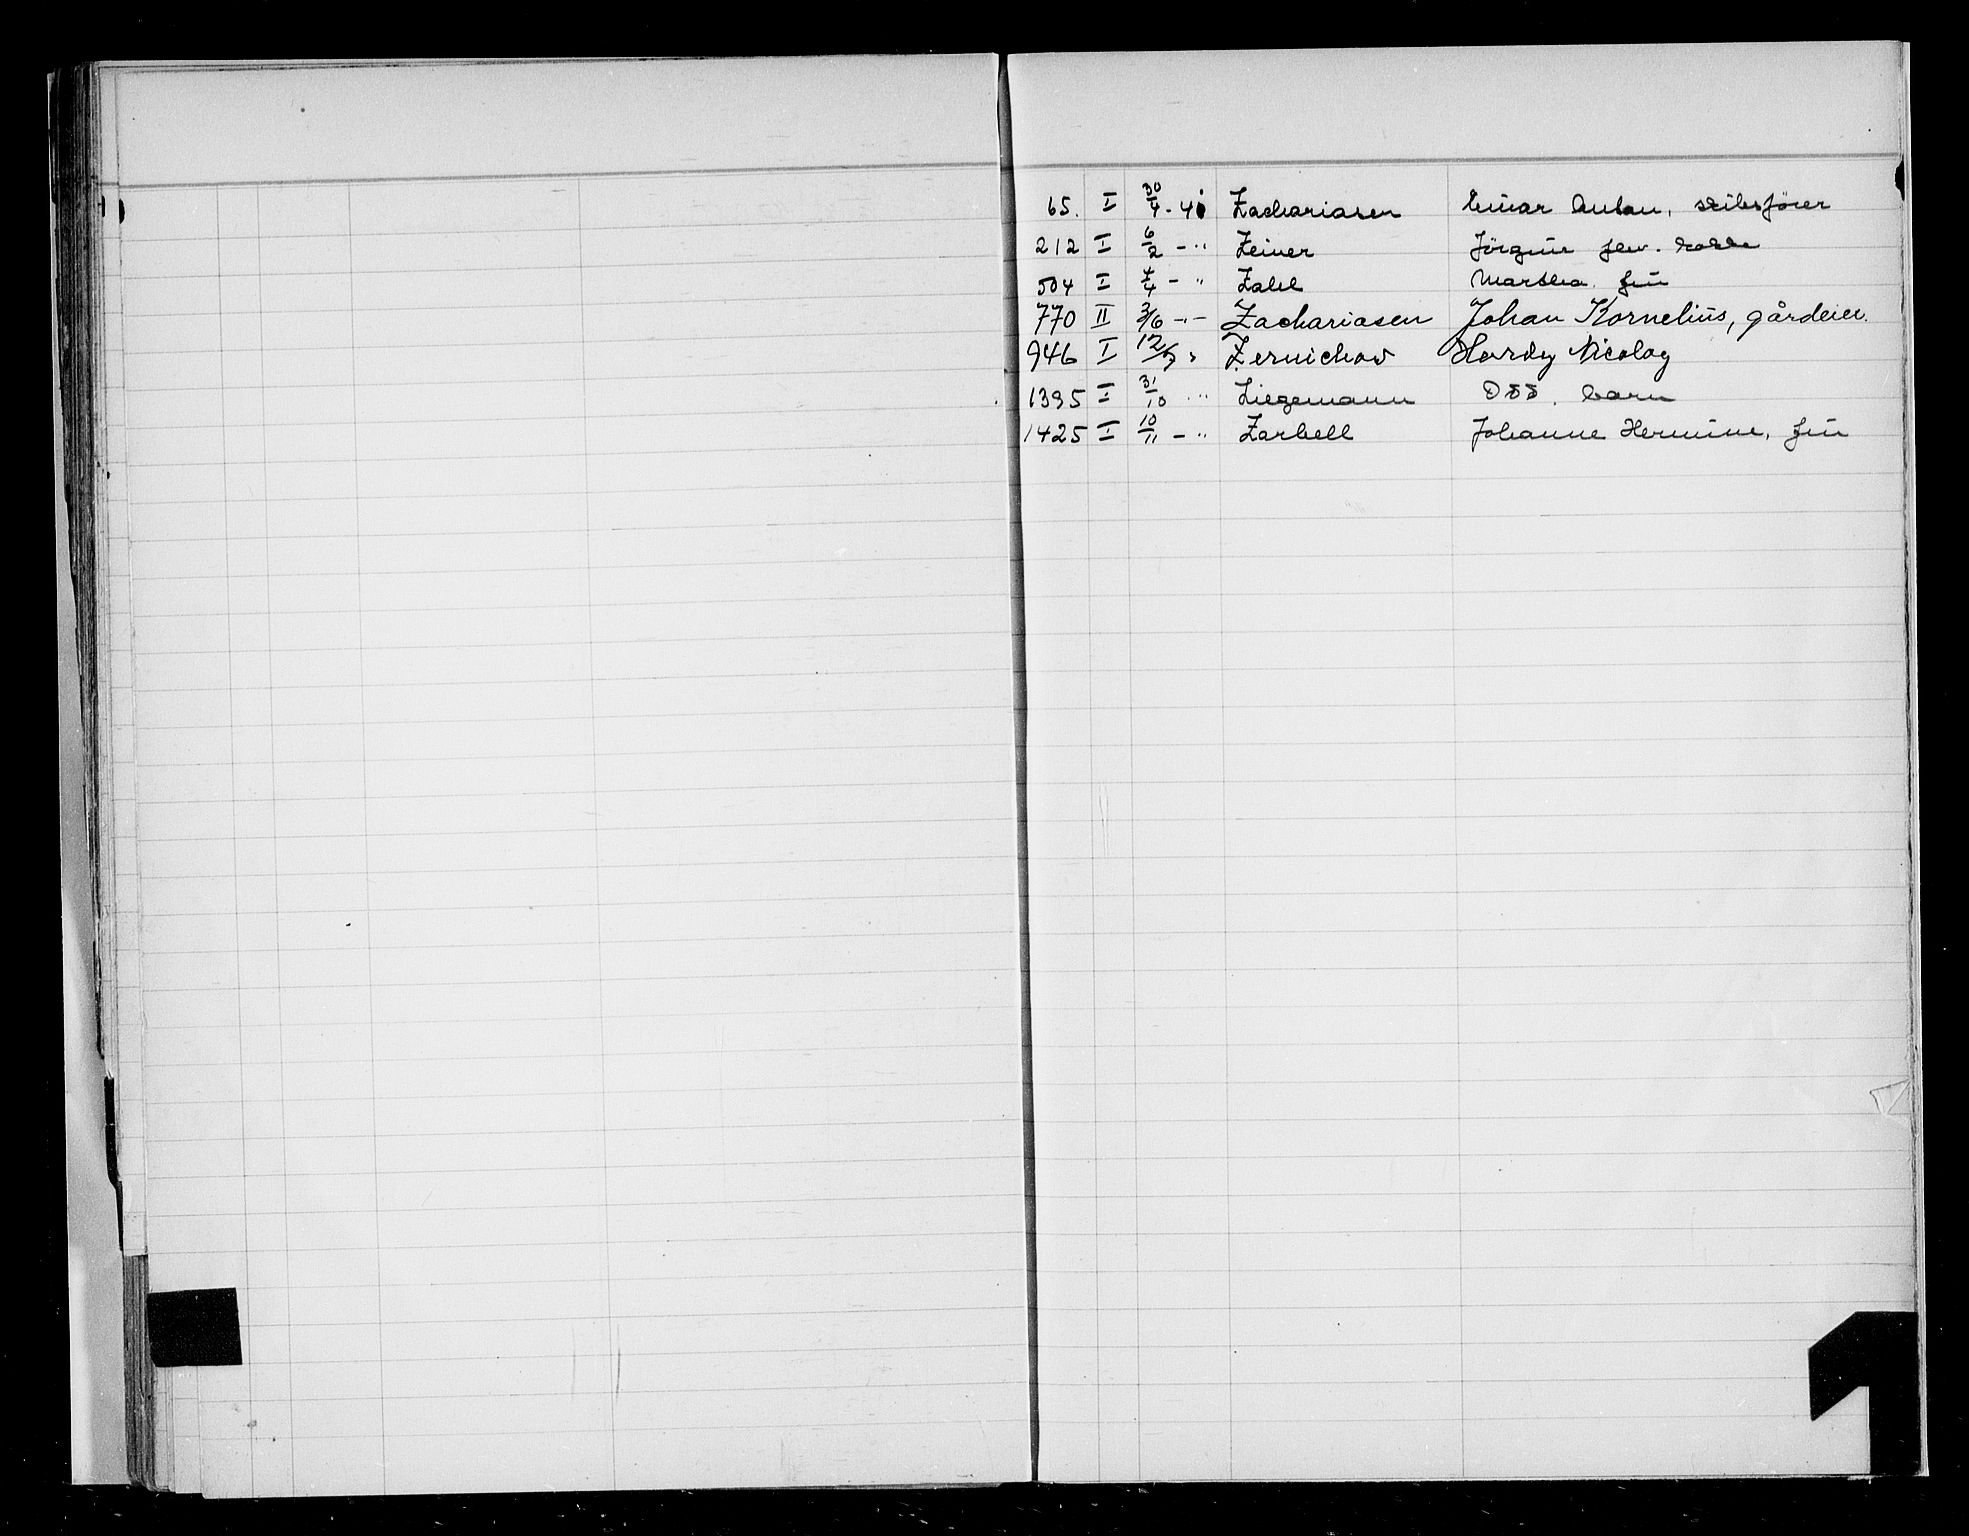 65. I 30/4-40 Zachariasen Einar Anton, skibsförer
212 I 6/2 - " Zeiner Jörgine
504 I 7/4 - " Zahl Martha. frü
770 II 3/6 -"- Zachariasen Johan Kornelius, gårdeier.
946 I 12/7 " Zernichow Hardy Nicolay
1395 I 31/10 " Ziegemann Död. barn
1425 I 10/11 - " Zarbell Johanne Hermine, frü